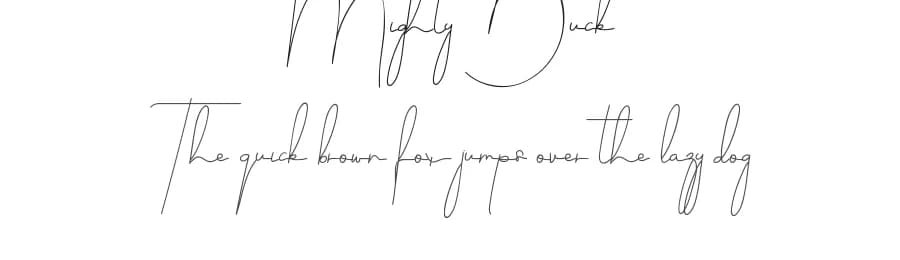 Mighly Duck
The quick brown fox jumps over the lazy dog